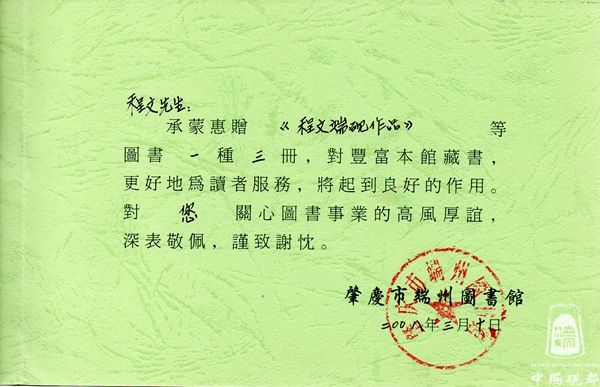 程文先生：
承蒙惠贈《程文端硯作品》等
圖書一種三冊，對豐富本館藏書，
更好地爲讀者服務，將起到良好的作用。
對您關心圖書事業的高風厚誼，
深表敬佩，謹致謝忱。
肇慶市端州圖書館
二00八年三月十日
中國硯都